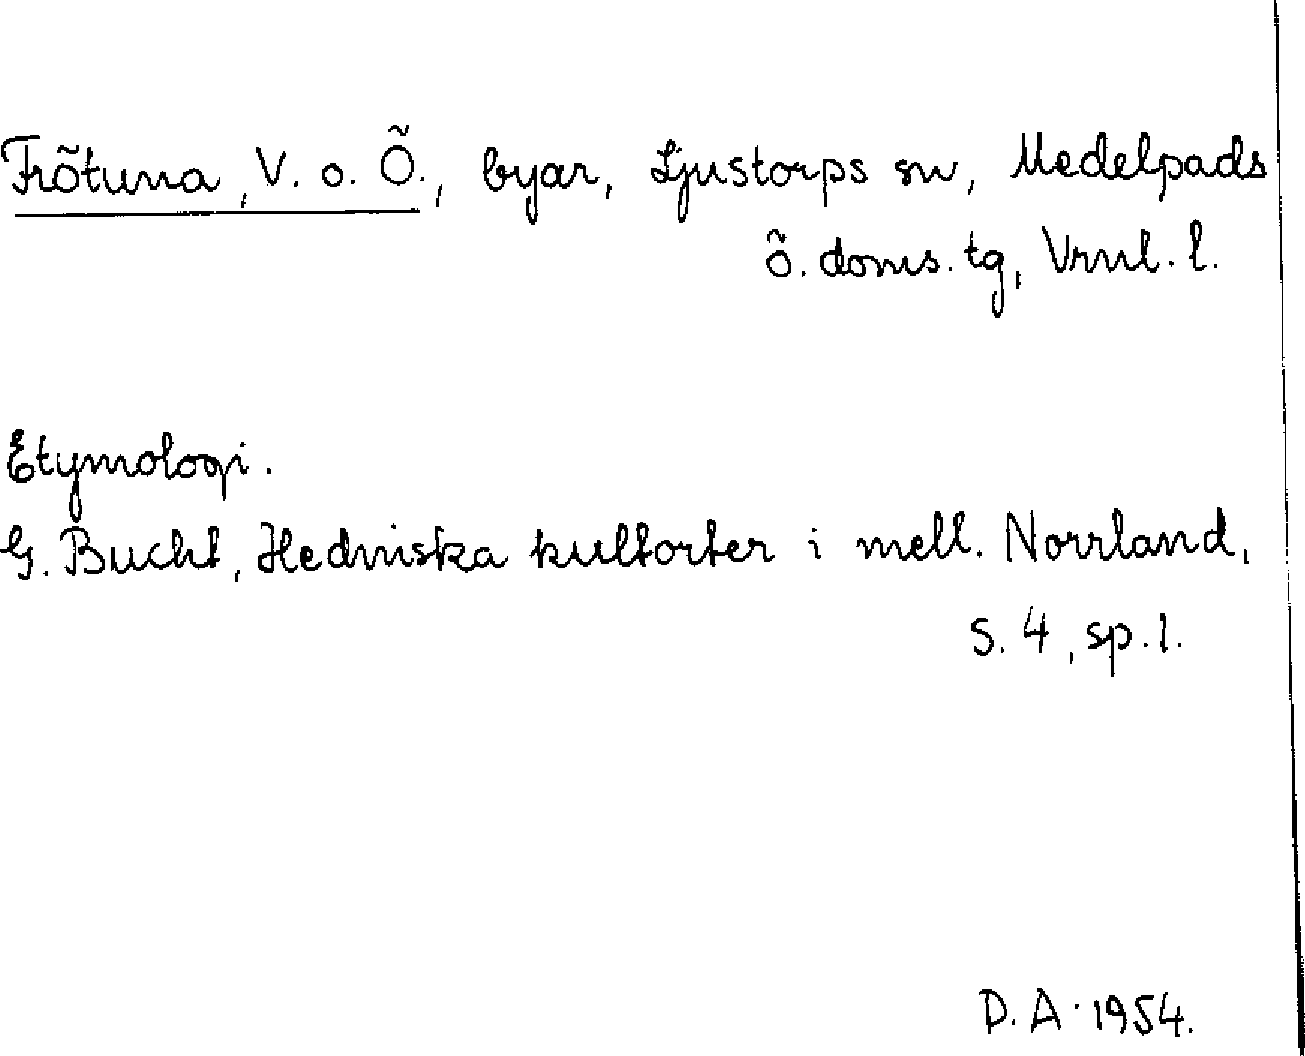 Frötuna, V. o. Ö., byar, Ljustorps sn, Medelpads
ö. doms. tg, Vrnl. l.
Etymologi.
G. Bucht, Hedniska kultorter i mell. Norrland,
s. 4, sp. 1.
D. A. 1954.